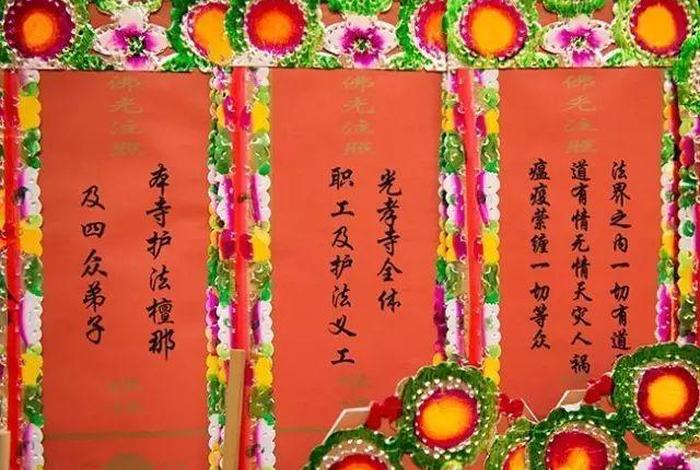 佛光注照
法界之内一切有道
道有情无情天灾人祸
瘟疫萦缠一切等众
佛光注照
光孝寺全体
职工及护法义工
佛光注照
本寺护法檀那
及四众弟子